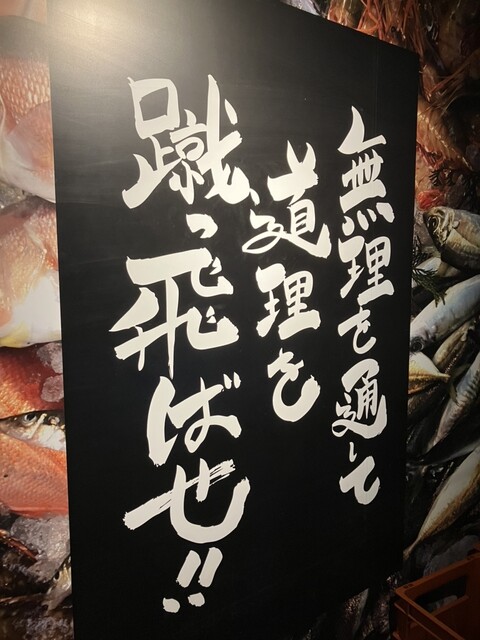 無理を通して
道理を
蹴っ飛ばせ!!